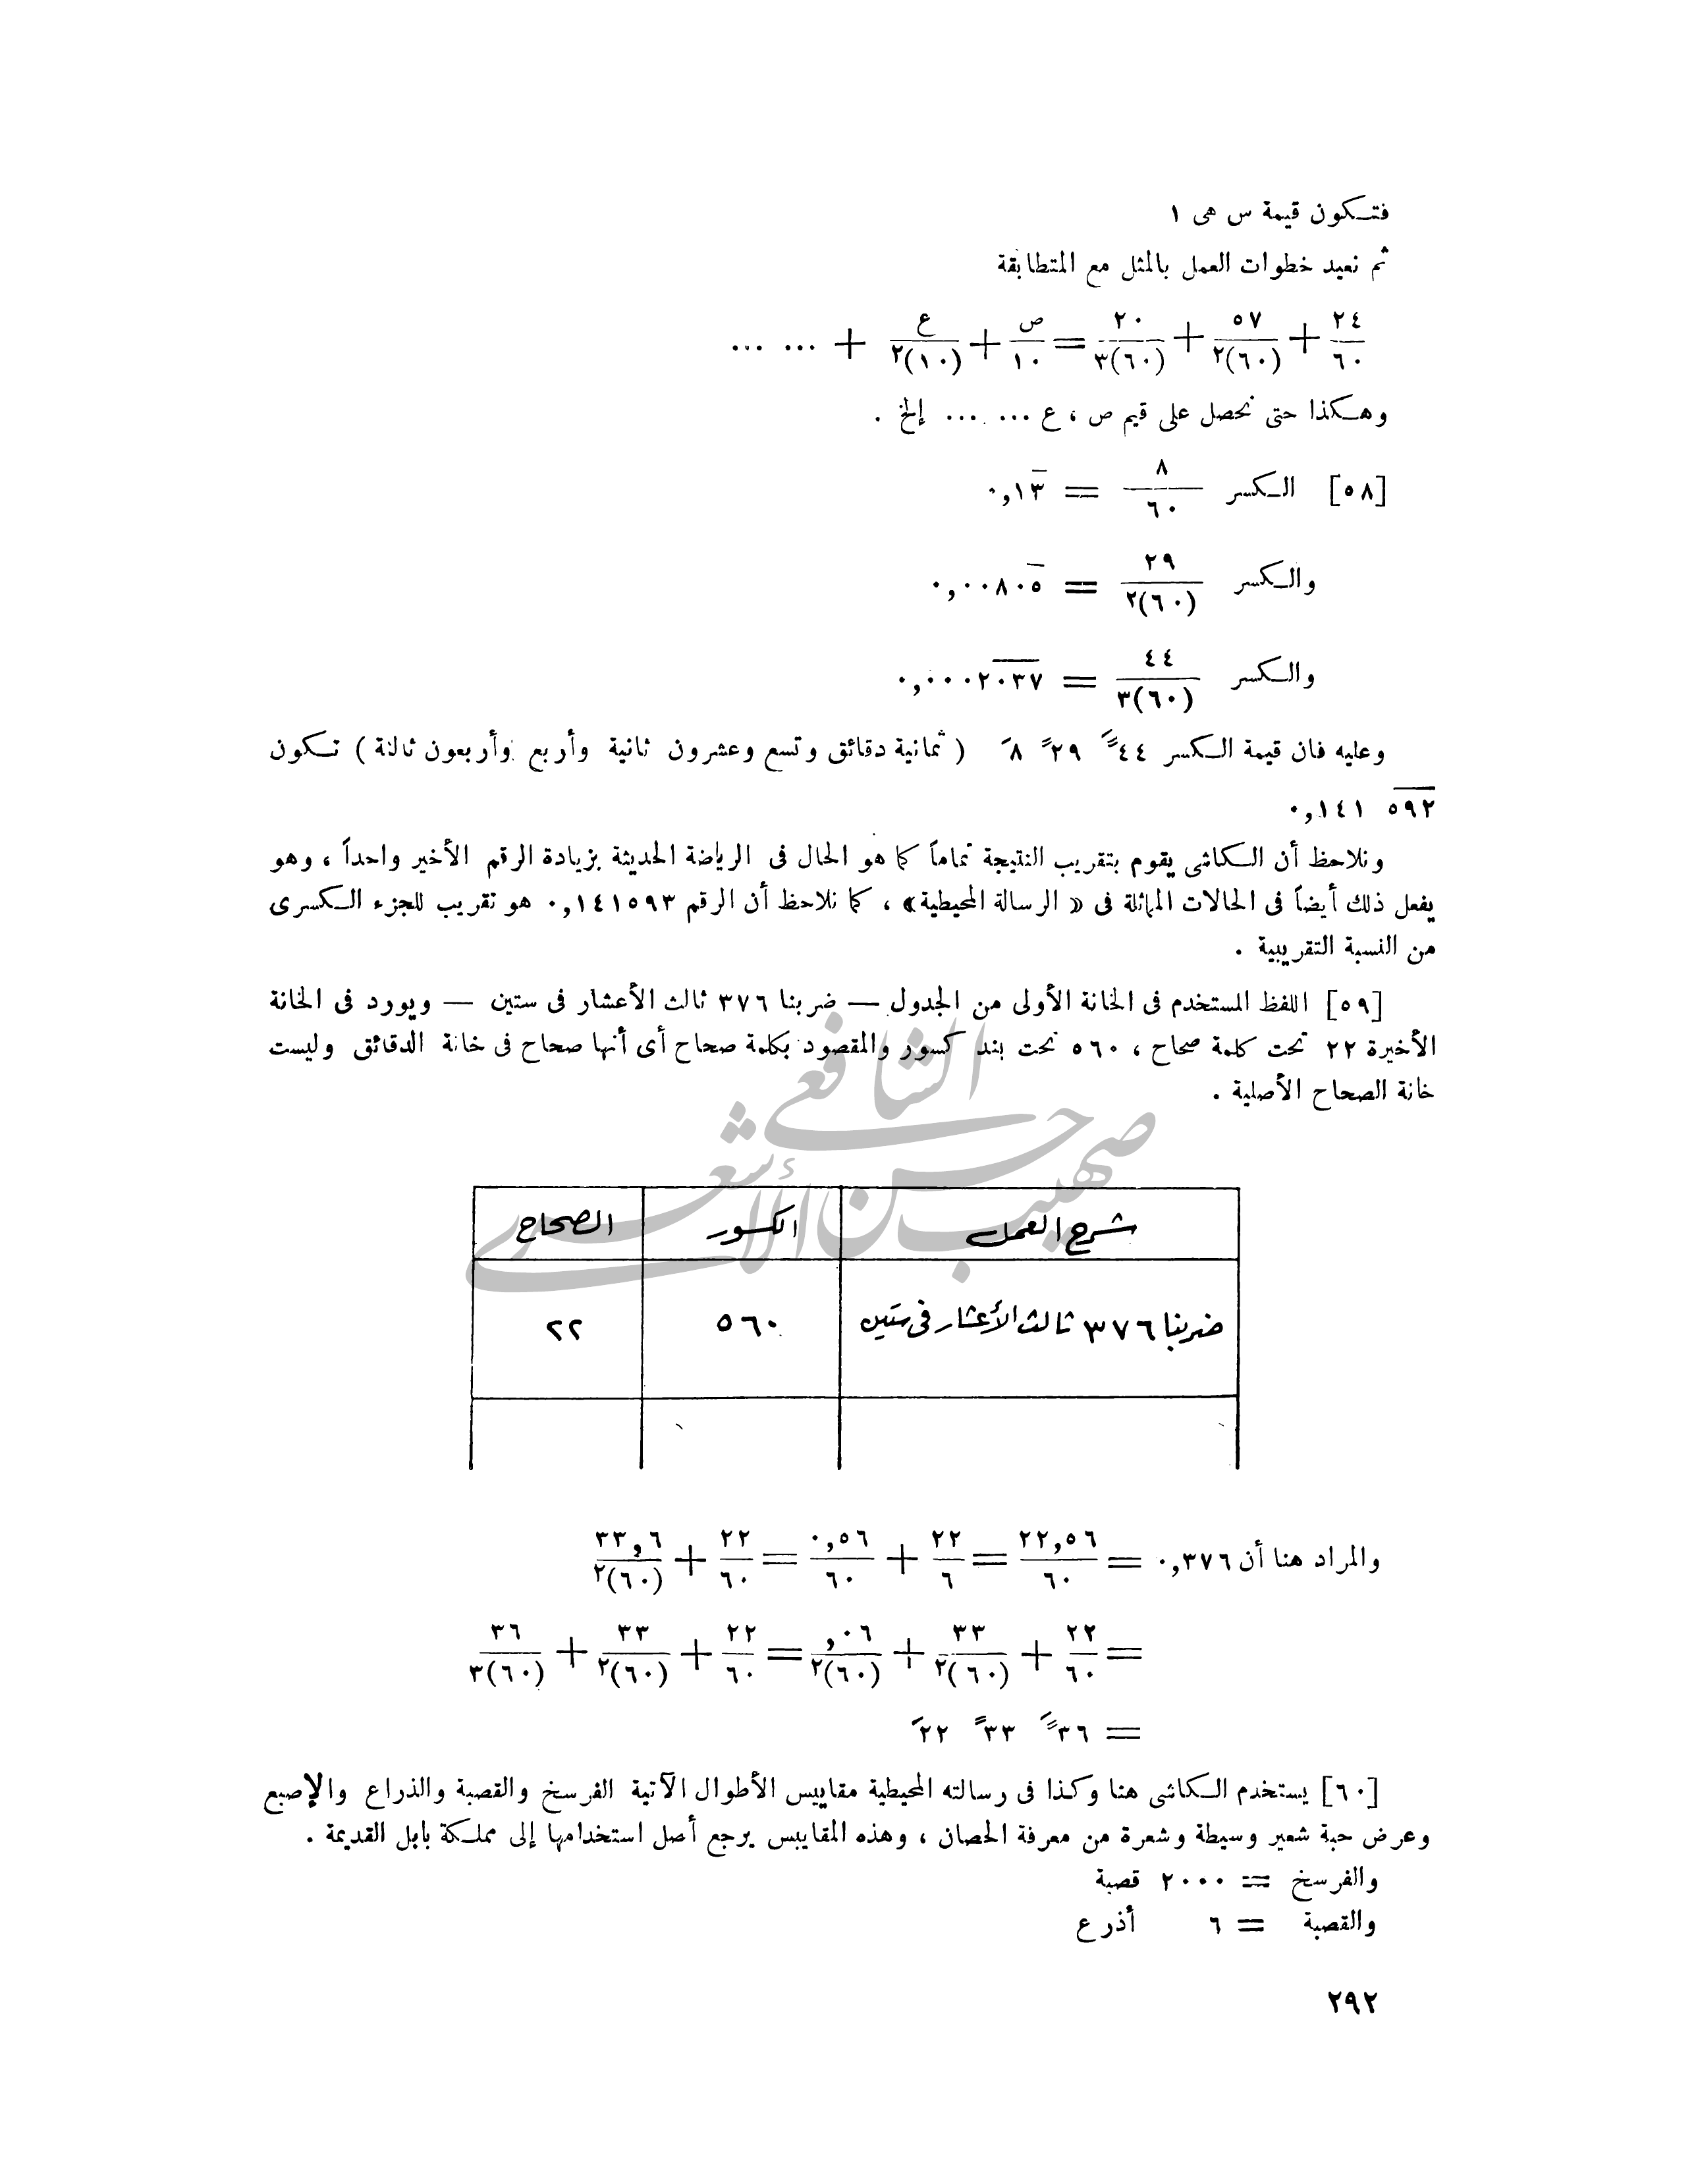 فتكون قيمة س هى ١
ثم نعيد خطوات العمل بالمثل مع المتطابقة
٢٤/٦٠ + ٥٧/(٦٠)٢ + ٢٠/(٦٠)٣ = ص/١٠ + ع/(١٠)٢ + ... ...
وهكذا حتى نحصل على قيم ص ، ع ... ... إلخ .
[٥٨] الكسر ٨/٦٠ = ٠,١٣̅
والكسر ٢٩/(٦٠)٢ = ٠,٠٠٨٠٥̅
والكسر ٤٤/(٦٠)٣ = ٠,٠٠٠٢٠̅٣̅٧̅
وعليه فان قيمة الكسر ٤٤‴ ٢٩″ ٨′ ( ثمانية دقائق وتسع وعشرون ثانية وأربع وأربعون ثالثة ) تكون
٠,١٤١ ٥̅٩̅٢̅
ونلاحظ أن الكاشى يقوم بتقريب النتيجة تماماً كما هو الحال فى الرياضة الحديثة بزيادة الرقم الأخير واحداً ، وهو
يفعل ذلك أيضاً فى الحالات المماثلة فى « الرسالة المحيطية» ، كما نلاحظ أن الرقم ٠,١٤١٥٩٣ هو تقريب للجزء الكسرى
من النسبة التقريبية .
[٥٩] اللفظ المستخدم فى الخانة الأولى من الجدول — ضربنا ٣٧٦ ثالث الأعشار فى ستين — ويورد فى الخانة
الأخيرة ٢٢ تحت كلمة صحاح ، ٥٦٠ تحت بند كسور والمقصود بكلمة صحاح أى أنها صحاح فى خانة الدقائق وليست
خانة الصحاح الأصلية .
صهيب حسن الشافعي الأشعري
شرح العمل الكسور الصحاح
ضربنا ٣٧٦ ثالث الأعشار فى ستين ٥٦٠ ٢٢
والمراد هنا أن ٠,٣٧٦ = ٢٢,٥٦/٦٠ = ٢٢/٦ + ٠,٥٦/٦٠ = ٢٢/٦٠ + ٣٣,٦/(٦٠)٢
= ٢٢/٦٠ + ٣٣/(٦٠)٢ + ,٠٦/(٦٠)٢ = ٢٢/٦٠ + ٣٣/(٦٠)٢ + ٣٦/(٦٠)٣
= ٣٦‴ ٣٣″ ٢٢′
[٦٠] يستخدم الكاشى هنا وكذا فى رسالته المحيطية مقاييس الأطوال الآتية الفرسخ والقصبة والذراع والإصبع
وعرض حبة شعير وسيطة وشعرة من معرفة الحصان ، وهذه المقاييس يرجع أصل استخدامها إلى مملكة بابل القديمة .
والفرسخ = ٢٠٠٠ قصبة
والقصبة = ٦ أذرع
٢٩٢